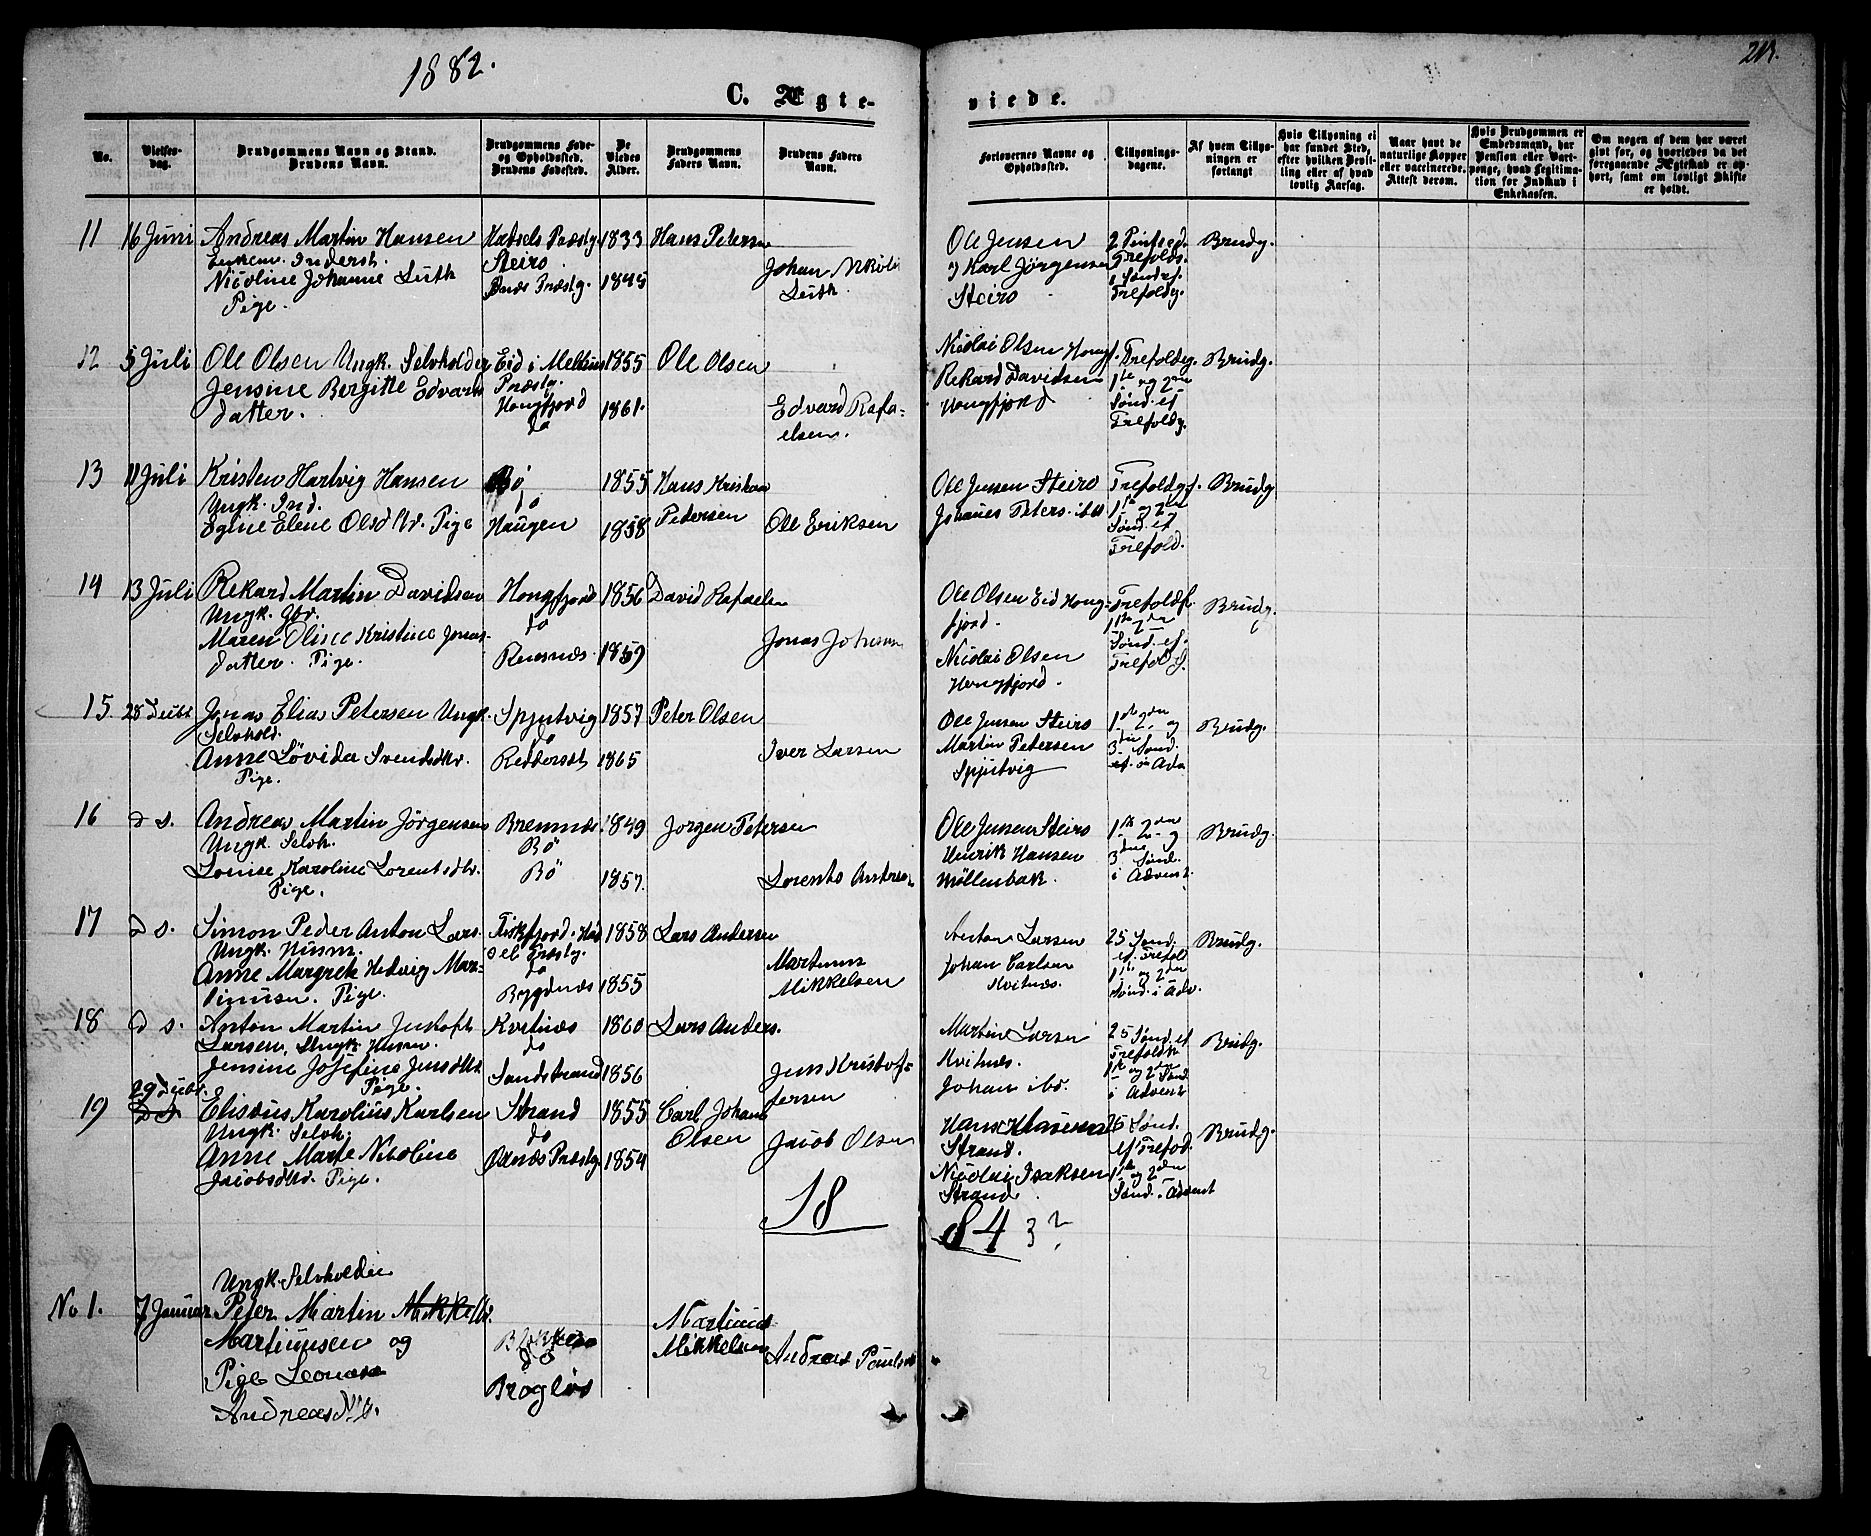 1882.
C. Ægte-
viede.
No.
Vielses-
dag.
Brudgommens Navn og Stand.
Brudens Navn.
Brudgommens Føde-
og Opholdssted.
Brudens Fødested.
De
Viedes
Alder.
Brudgommens
Faders Navn.
Brudens Faders
Navn.
Forlovernes Navne og
Opholdssted.
Tillysnings-
dagene.
Af hvem Tillys-
ningen er
forlangt
Hvis Tillysning ei
har fundet Sted,
efter hvilken Bevil-
ling eller af hvad
lovlig Aarsag.
Naar havt de
naturlige Kopper
eller vaccinerede.
Attest derom.
Hvis Brudgommen er
Embedsmand, har
Pension eller Vart-
penge, hvad Legitima-
tion for Indskud i
Enkekassen.
Om nogen af dem har været
gift før, og hvorledes da det
foregaaende Ægteskab er op-
hørt, samt om lovligt Skifte
er holdt.
11 16 Juni Andreas Martin Hansen Hadsels Præstg. 1833 Hans Petersen
Enkem. Inderst. Steiro
Nicoline Johanne Luth Øxnæs Præstg. 1845 Johan Nikolai
Pige. Luth.
Ole Jensen Brudg.
Karl Jörgensen
Steiro
12 5 Juli Ole Olsen Ungk. Selvholder Eid i Melhus 1855 Ole Olsen
Jensine Bergitte Edvards Præstg.
datter. Hongfjord 1861. Edvard Rafa-
do elsen.
Nicolai Olsen Hongf. Trefoldg. Brudg.
Rekard Davidsen 1ste og 2den
Hongfjord Sönd. ef
Trefoldg.
13 11 Juli Kristen Hartvig Hansen Bö 1855 Hans Kristian
Ungk. Ind. do Petersen
Egine Elene Olsdtr. Pige Haugen 1858 Ole Eriksen
Ole Jensen Steiro Trefoldgf. Brudg
Johanes Peters. ibd 1ste og 2den
Sönd. ef
Trefold.
14 13 Juli Rekard Martin Davidsen Hongfjord 1856 David Rafaelsen
Ungk. do
Maren Olise Kristine Jonas-
datter. Pige. Reesnæs 1859 Jonas Johnsen
Ole Olsen Eid Hong- Trefoldsf. Brudg.
fjord. 1ste 2den
Nicolai Olsen Sönd. ef.
Hongfjord. Trefold f.
15. 28 Decbr Jonas Elias Petersen Ungk. Spjutvig 1857 Peter Olsen
Selvhold. do
Anne Lövida Svendsdtr. 1865 Iver Larsen
Pige.
Ole Jensen Steiro 1ste 2den og Brudg.
Martin Petersen 3die Sönd.
Spjutvig
16 d s. Andreas Martin Jörgensen Bremnæs 1849 Jorgen Petersen
Ungk. Selvh. Bö
Louise Karoline Lorentsdtr. Bö 1857. Lorents Andreas
Pige.
Ole Jensen Steiro 1ste 2den og Brudg.
Henrik Hansen 3die Sönd.
Möllenbak. i Advent.
17 d s. Simon Peder Anton Lars. Fiskfjord. Had 1858 Lars Andersen
Ungk. Husm. sel Præstg.
Anne Margrete Hedvig Mar- do Martinus
tinusen. Pige. Bygdnæs 1855 Mikkelsen
Anton Larsen 25 Sönd. Brudg.
Johan Carlsen ef. Trefold
Kvitnæs. 1ste og 2den
Sönd. i Adv.
18 d s. Anton Martin Justoft Kvitnæs 1860 Lars Anders.
Larsen, Ungk. Husm. do
Jensine Josefine Jensdtr Sandstrand 1856 Jens Kristof-
Pige. fersen
Martin Larsen 25 Sönd. ef Brudg.
Kvitnæs. Trefoldk
Johan ibd. 1ste og 2den Sönd
i Advent
29 Decbr.
19 Elisæus Karolius Karlsen Strand 1855 Carl Johan
Ungk. Selvh. do Olsen
Anne Marte Nikoline Øxnæs Præstg. 1854 Jacob Olsen
Jacobsdtr. Pige.
Hans 25 Sönd. Brudg.
Strand. ef Trefod.
Nicolai Isaksen 1ste og 2den
Strand. Sönd. i Advent
18
84 3?
Ungk. Selvholder
No 1. 7 Januar Peter Martin Martinus
Martinusen og Mikkelsen
Pige Leonase do Andreas Paulsen
Andreasdtr.